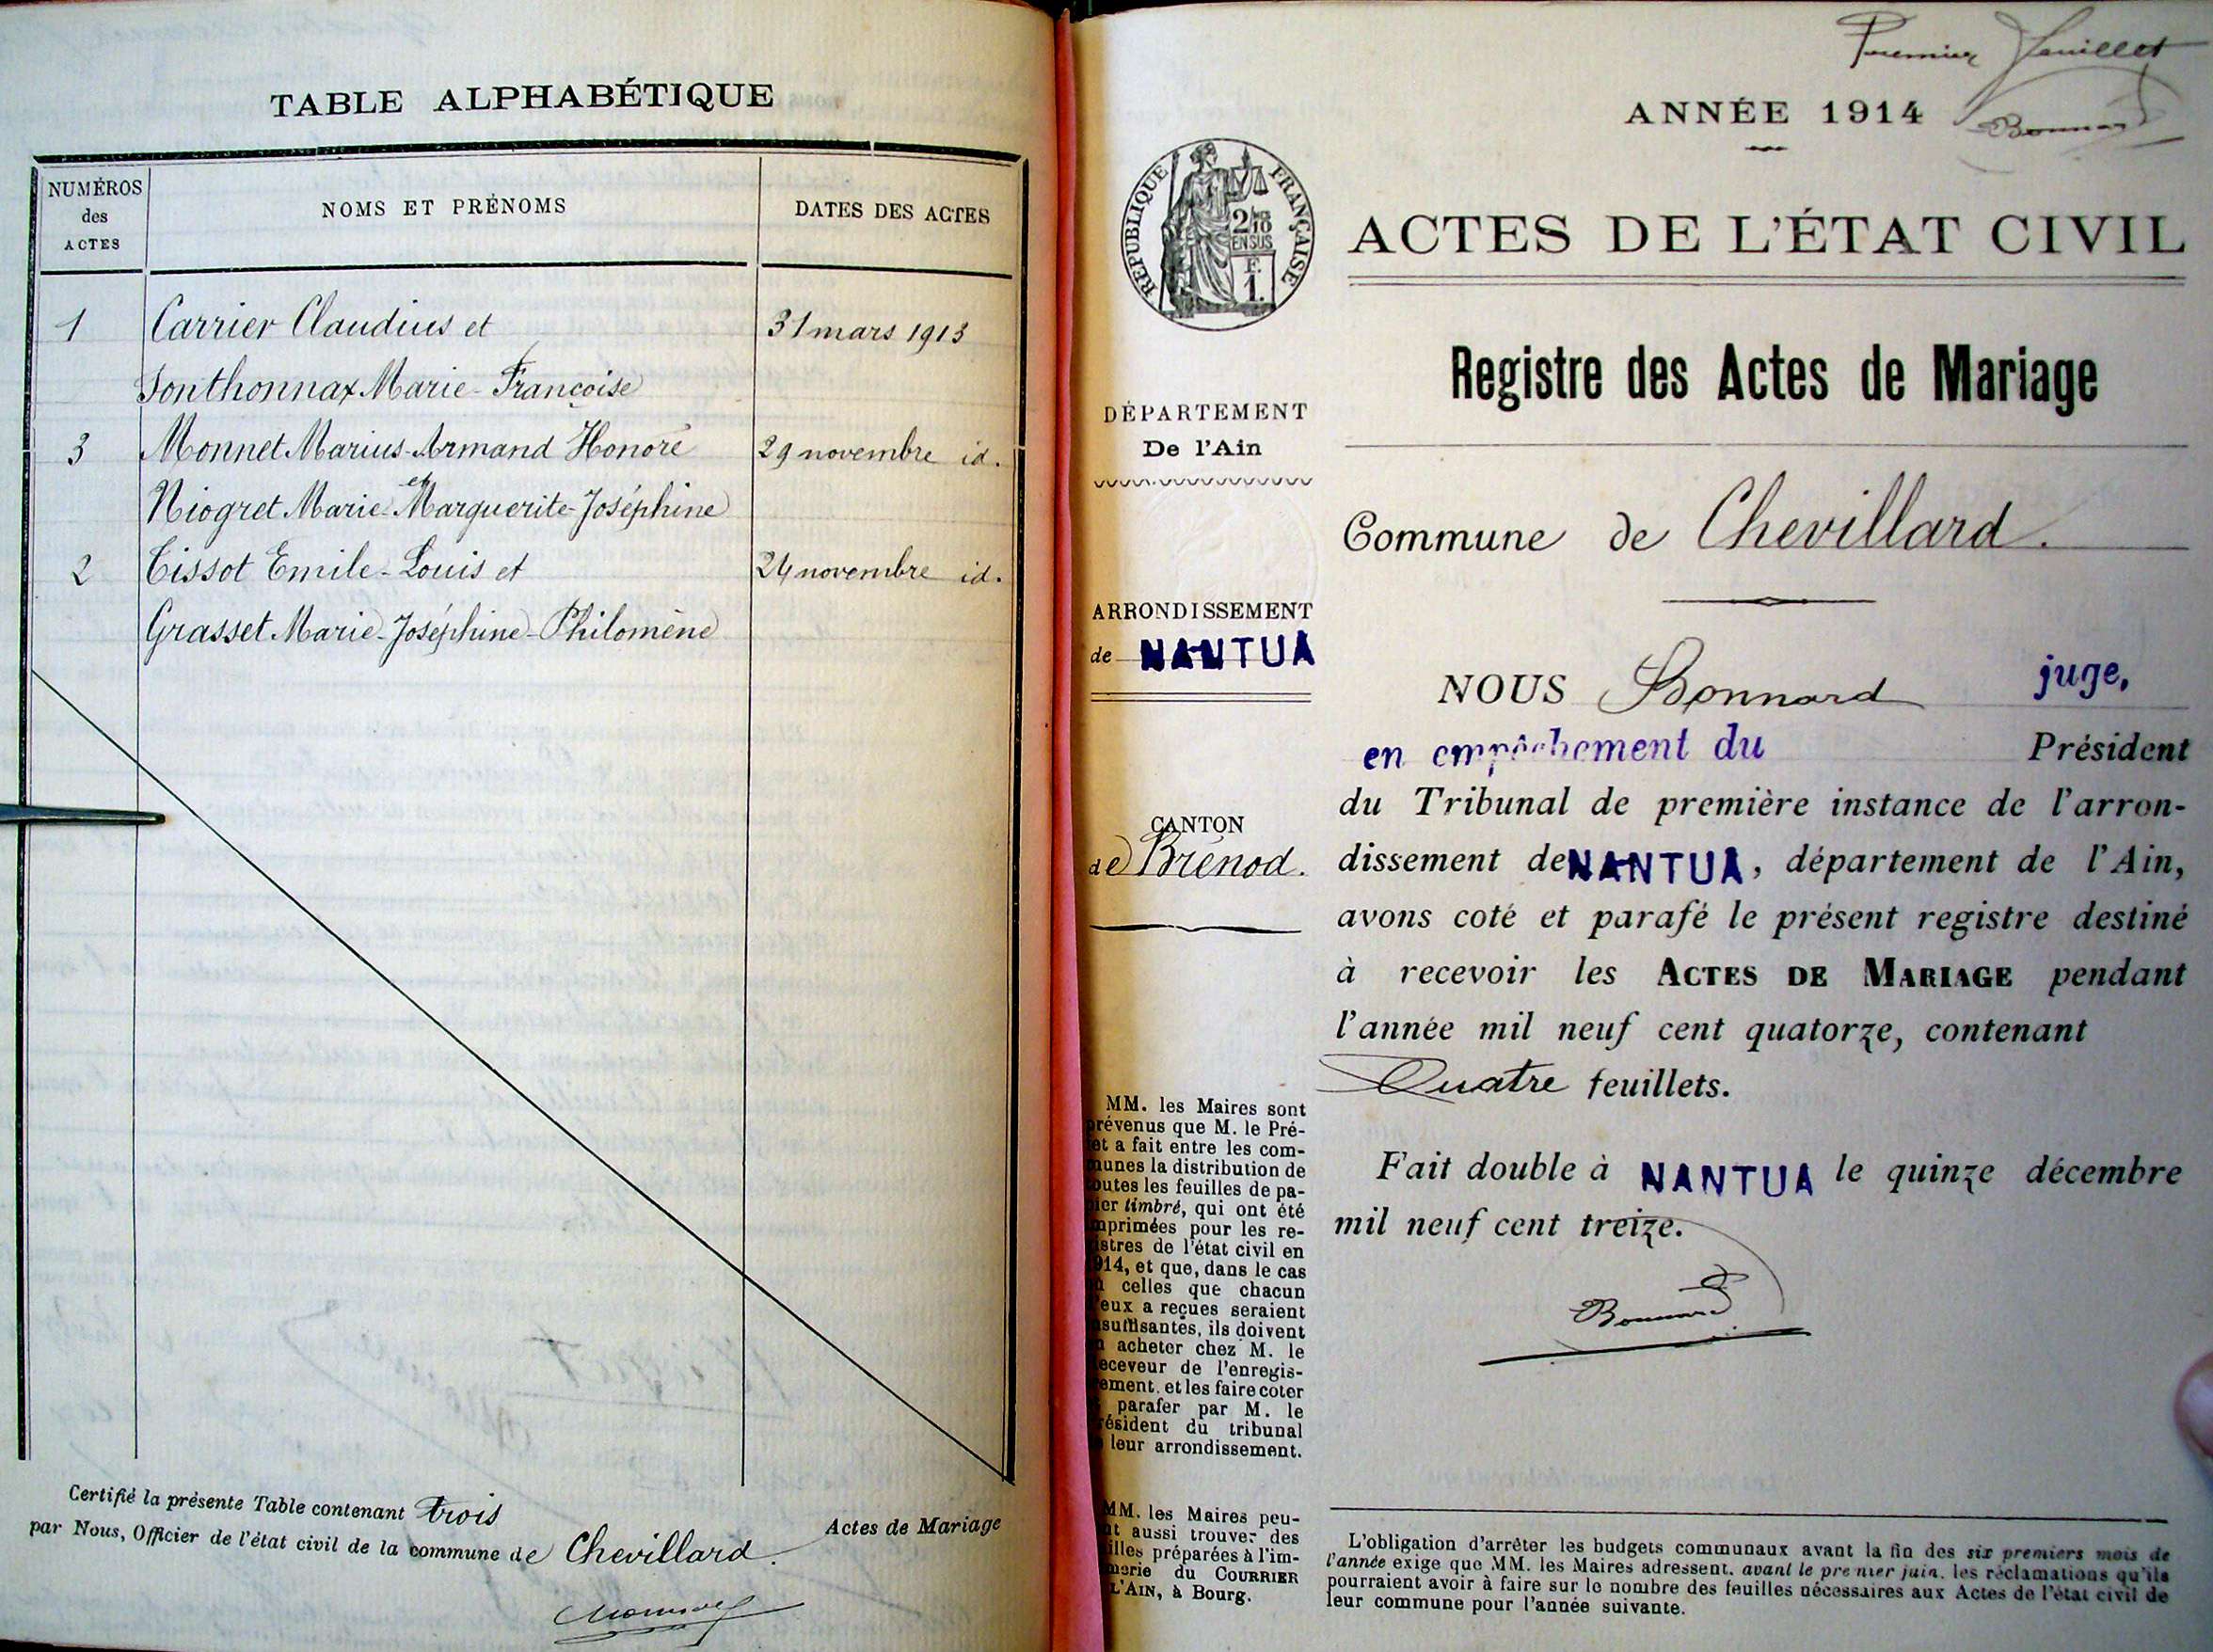 TABLE ALPHABÉTIQUE
NUMÉROS
des
ACTES
NOMS ET PRÉNOMS
DATES DES ACTES
1
Carrier Claudius et
31 mars 1913
Jonthonnax Marie-Françoise
3
Monnet Marius-Armand Honoré
29 novembre id.
et
Niogret Marie-Marguerite-Joséphine
2
Tissot Emile-Louis et
24 novembre id.
Grasset Marie-Joséphine-Philomène
Certifié la présente Table contenant trois
Actes de Mariage
par Nous, Officier de l'état civil de la commune de Chevillard.
Premier feuillet
Bonnard
ANNÉE 1914
RÉPUBLIQUE FRANÇAISE
2/10 18
EN SUS
F.
1.
ACTES DE L'ÉTAT CIVIL
Registre des Actes de Mariage
DÉPARTEMENT
De l'Ain
Commune de Chevillard.
ARRONDISSEMENT
de NANTUA
CANTON
de Brénod.
NOUS Bonnard juge,
en empêchement du Président
du Tribunal de première instance de l'arron-
dissement de NANTUA, département de l'Ain,
avons coté et parafé le présent registre destiné
à recevoir les ACTES DE MARIAGE pendant
l'année mil neuf cent quatorze, contenant
Quatre feuillets.
Fait double à NANTUA le quinze décembre
mil neuf cent treize.
Bonnard
MM. les Maires sont
prévenus que M. le Pré-
et a fait entre les com-
munes la distribution de
toutes les feuilles de pa-
pier timbré, qui ont été
imprimées pour les re-
istres de l'état civil en
1914, et que, dans le cas
où celles que chacun
d'eux a reçues seraient
insuffisantes, ils doivent
en acheter chez M. le
receveur de l'enregis-
ement. et les faire coter
parafer par M. le
résident du tribunal
leur arrondissement.
MM. les Maires peu-
nt aussi trouver des
illes préparées à l'im-
merie du COURRIER
L'AIN, à Bourg.
L'obligation d'arrêter les budgets communaux avant la fin des six premiers mois de
l'année exige que MM. les Maires adressent, avant le premier juin, les réclamations qu'ils
pourraient avoir à faire sur le nombre des feuilles nécessaires aux Actes de l'état civil de
leur commune pour l'année suivante.